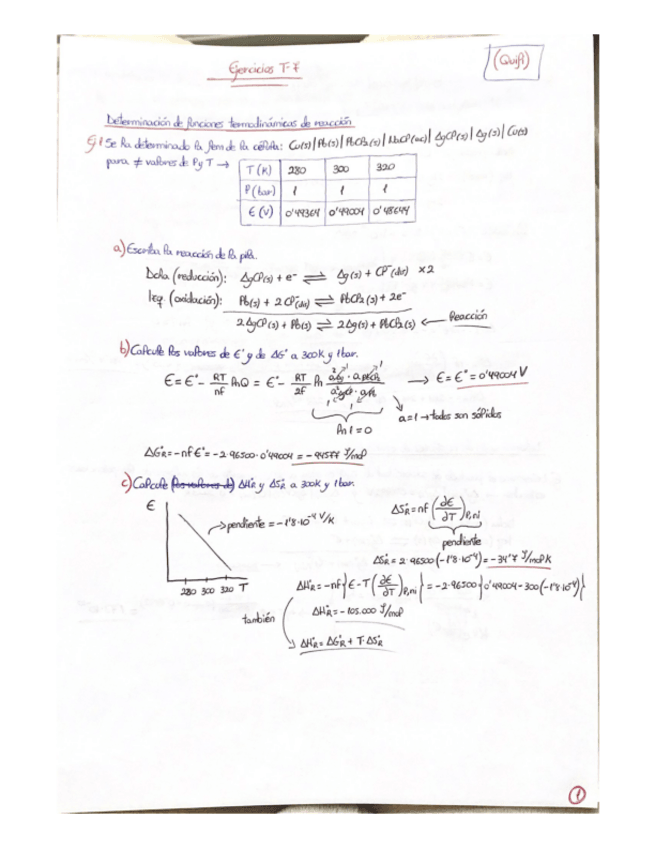 Ejercicios T-7
(Quifi)
Determinación de funciones termodinámicas de reacción
Ej 1 Se ha determinado la fem de la célula: Cu(s)|Pb(s)|PbCl₂(s)|NaCl(ac)|AgCl(s)|Ag(s)|Cu(s)
para ≠ valores de P y T →
T(K) 280 300 320
P(bar) 1 1 1
E(V) 0'49364 0'49004 0'48644
a) Escriba la reacción de la pila.
Dcha (reducción): AgCl(s) + e⁻ ⇌ Ag(s) + Cl⁻(dis) ×2
Izq (oxidación): Pb(s) + 2Cl⁻(dis) ⇌ PbCl₂(s) + 2e⁻
2AgCl(s) + Pb(s) ⇌ 2Ag(s) + PbCl₂(s) ← Reacción
b) Calcule los valores de E° y de ΔG° a 300K y 1bar.
E = E° - RT/nF ln Q = E° - RT/2F ln a²Ag · aPbCl₂ / a²AgCl · aPb → E = E° = 0'49004 V
ln 1 = 0
a=1 → todos son sólidos
ΔG°R = -nFE° = -2·96500·0'49004 = -94577 J/mol
c) Calcule (los valores de) ΔH°R y ΔS°R a 300K y 1bar.
E
pendiente = -1'8·10⁻⁴ V/K
280 300 320 T
ΔS°R = nF(∂E/∂T)P,ni
pendiente
ΔS°R = 2·96500(-1'8·10⁻⁴) = -34'7 J/mol K
ΔH°R = -nF{E - T(∂E/∂T)P,ni} = -2·96500{0'49004 - 300(-1'8·10⁻⁴)}
ΔH°R = -105.000 J/mol
también
ΔH°R = ΔG°R + T·ΔS°R
1